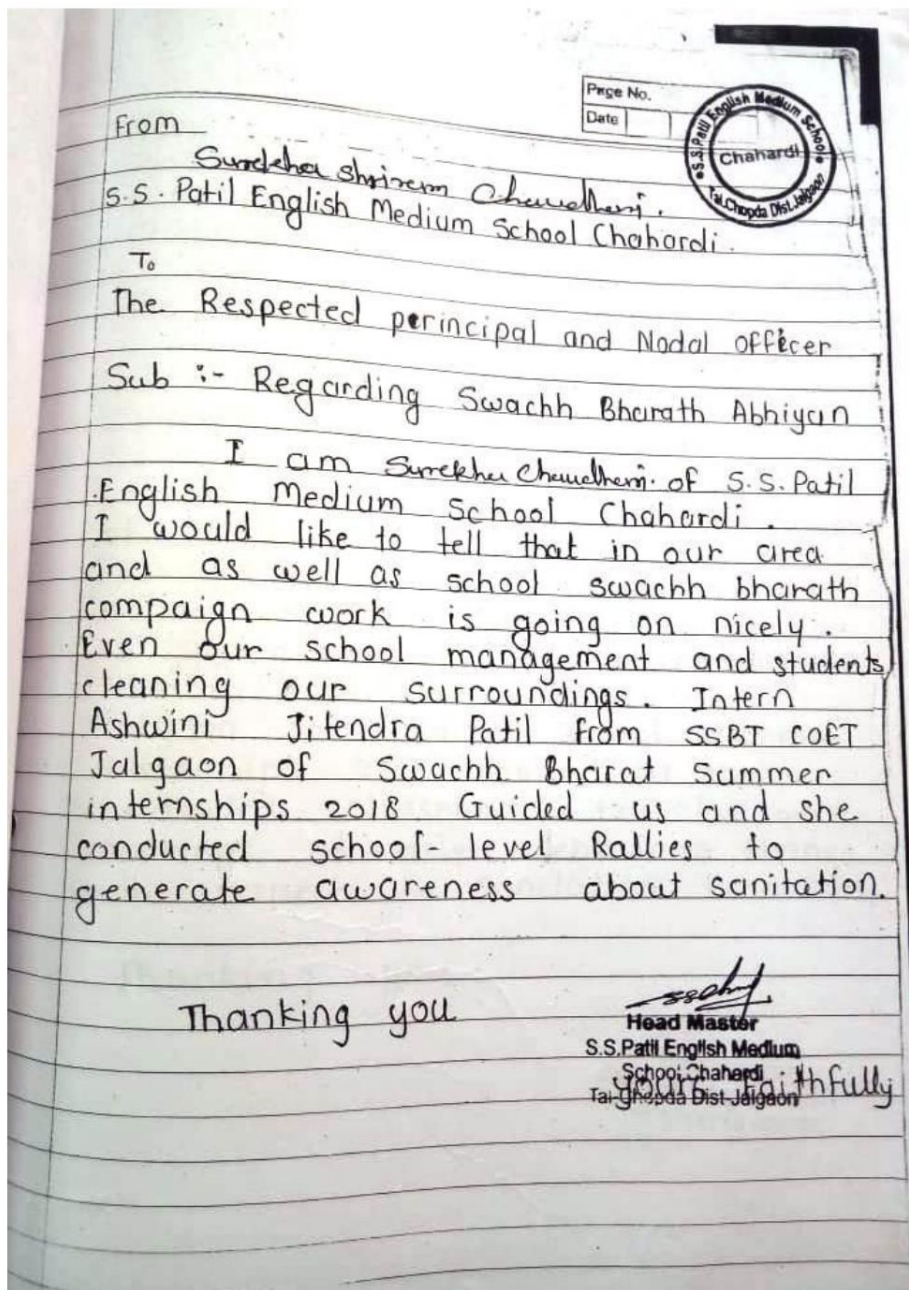 Page No.
Date
S.S.Patil English Medium School
Chahardi
Tal.Chopda Dist.Jalgaon
From
Surekha Shriram Chaudhari.
S.S. Patil English Medium School Chahardi.
To
The Respected perincipal and Nodal officer
Sub :- Regarding Swachh Bharath Abhiyan
I am Surekha Chaudhari. of S.S. Patil
English Medium School Chahardi.
I would like to tell that in our area
and as well as school swachh bharath
compaign work is going on nicely.
Even our school management and students
cleaning our surroundings. Intern
Ashwini Jitendra Patil from SSBT COET
Jalgaon of Swachh Bharat Summer
internships 2018 Guided us and she
conducted school-level Rallies to
generate awareness about sanitation.
Thanking you
Head Master
S.S.Patil English Medium
School,Chahardi
Tal-Chopda Dist-Jalgaon
yours Faithfully